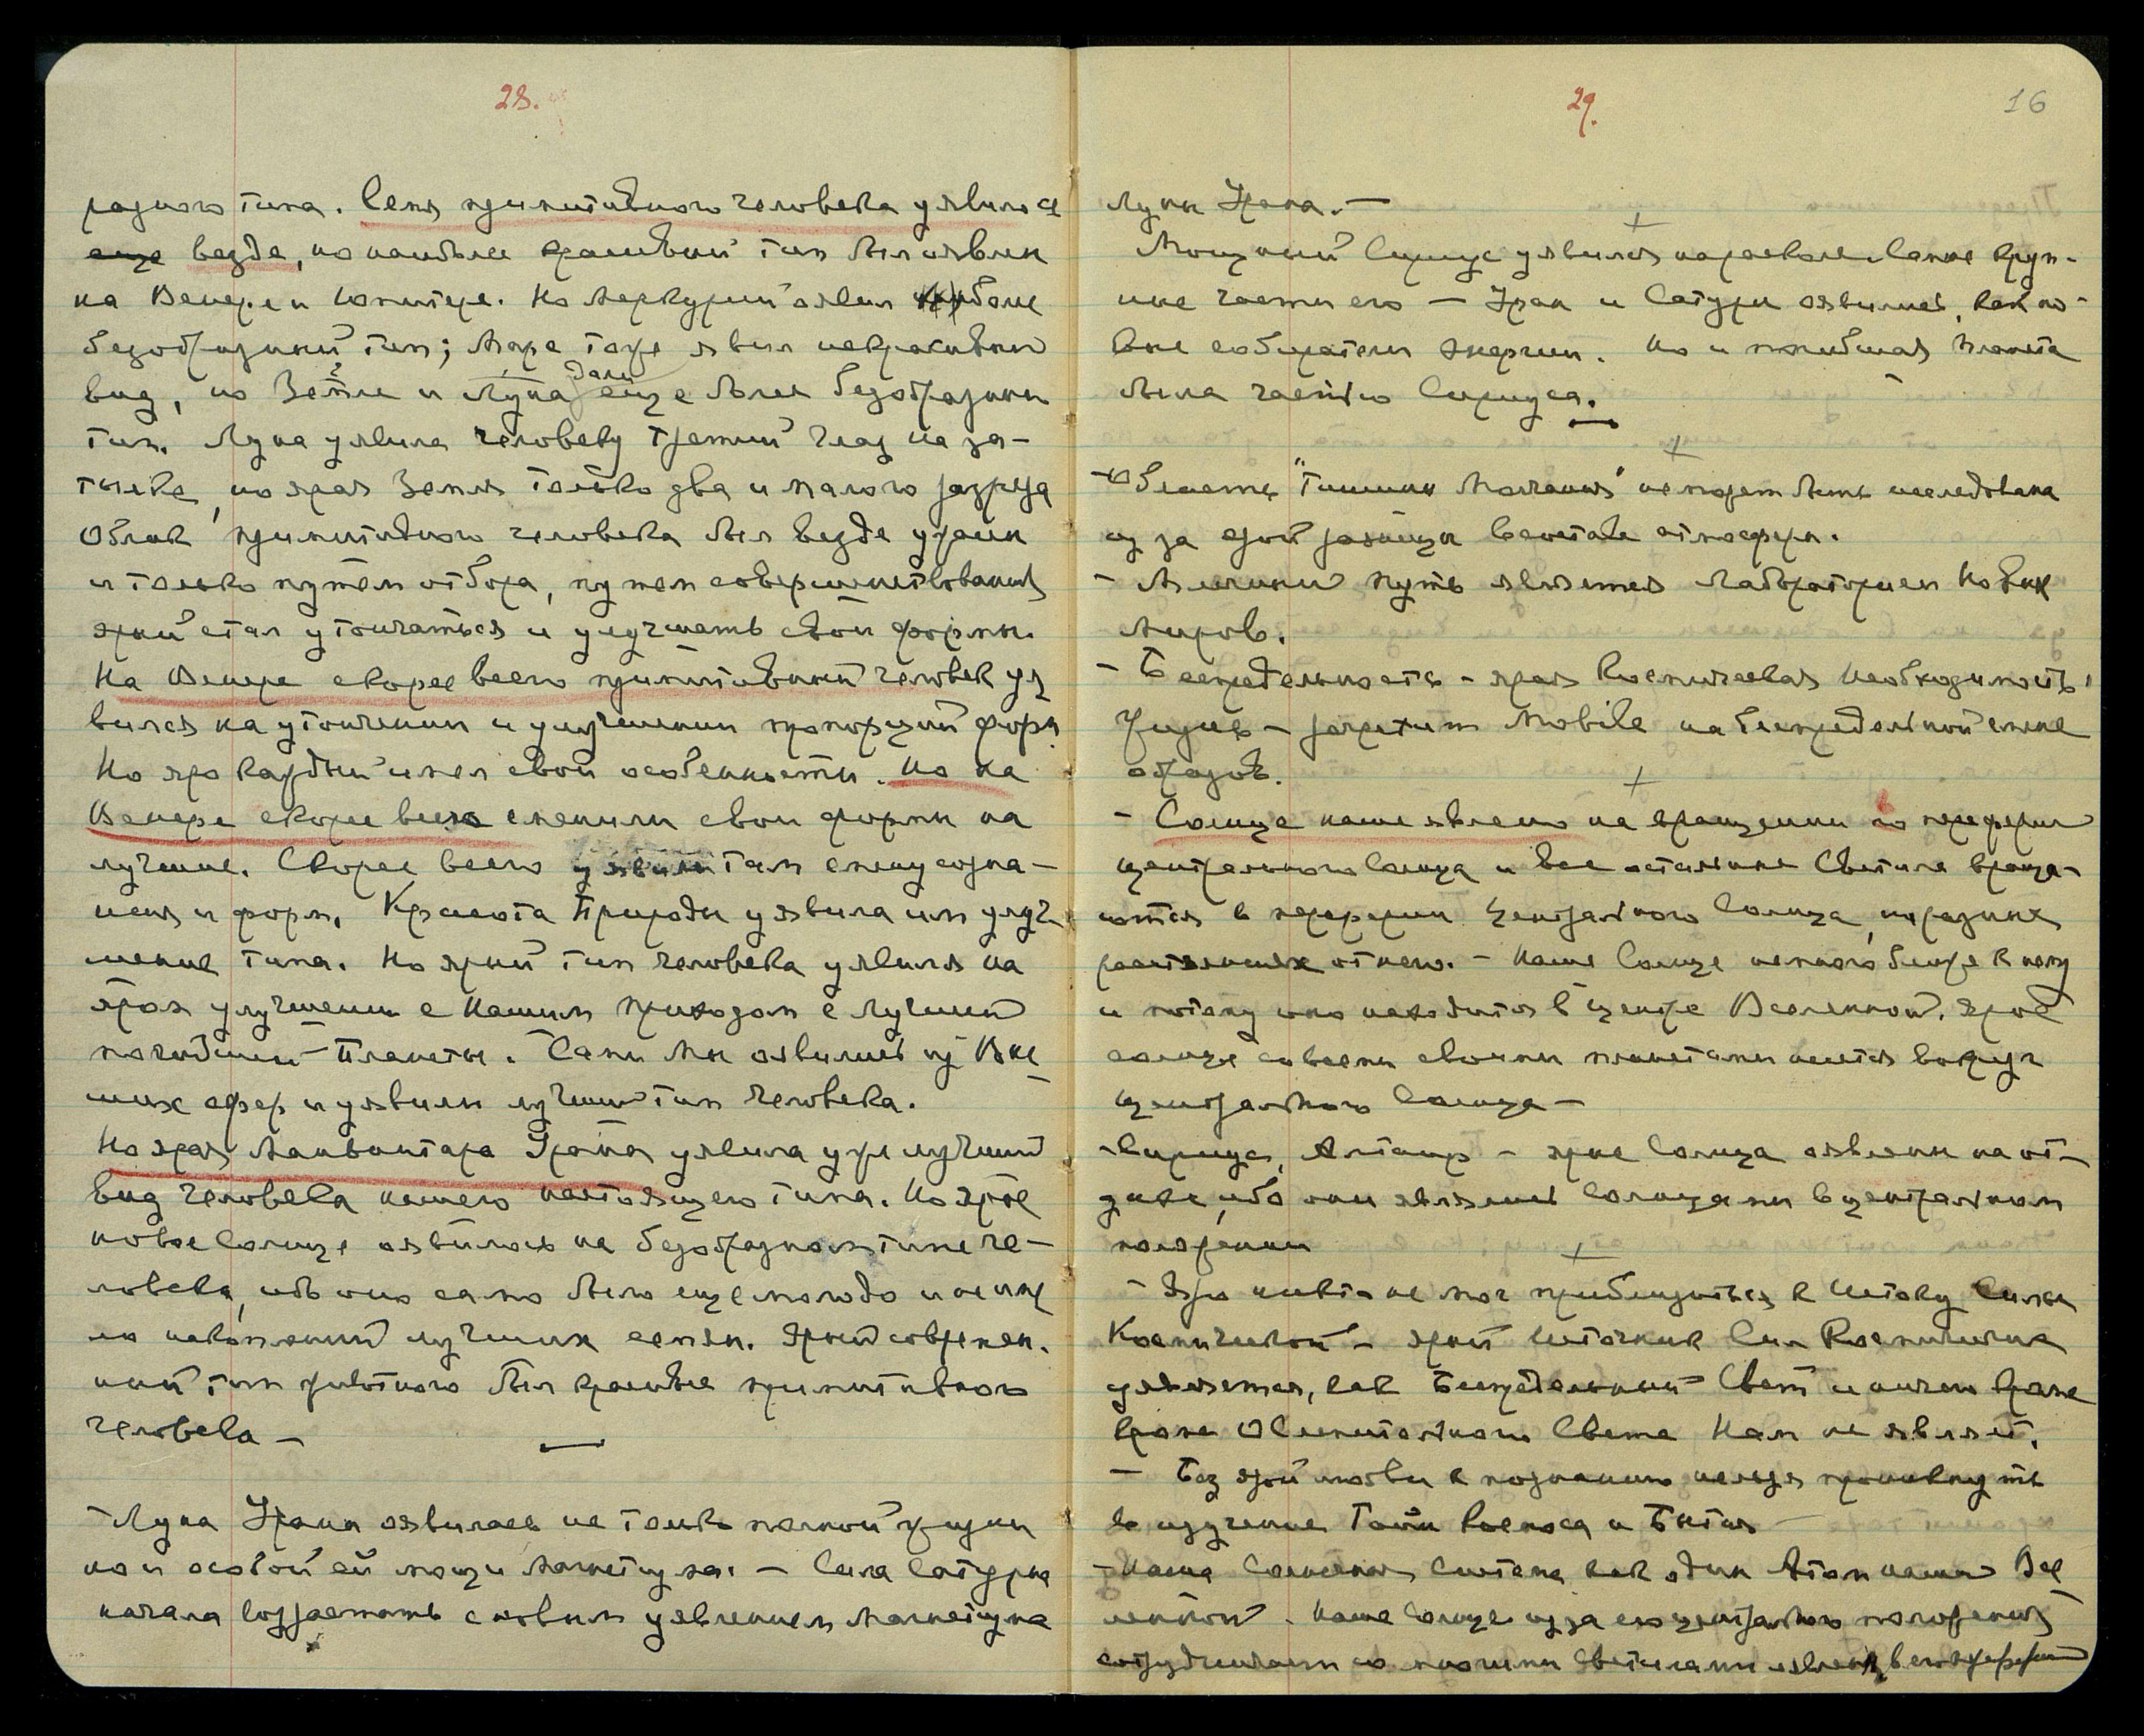 28.
разного типа. Семя примитивного человека уявилось
еще везде, но наиболее красивый тип был явлен
на Венере и Юпитере. Но Меркурий явил наиболее
безобразный тип; Марс тоже явил некрасивый
вид, но Земле и Луна дали еще более безобразный
тип. Луна уявила человеку третий глаз на за-
тылке, но ярая Земля только два и малого разреза
Облик примитивного человека был везде ужасен
и только путем отбора, путем совершенствования
ярый стал утончаться и улучшать свои формы.
На Венере скорее всего примитивный человек уя
вился на утончении и улучшении пропорций форм.
Но яро каждый имел свои особенности. Но на
Венере скорее всего сменили свои формы на
лучшие. Скорее всего уявили там смену созна-
ния и форм. Красота Природы уявила им улуч
шение типа. Но ярый тип человека уявился на
яром улучшении с Нашим приходом с лучшей
погибшей Планеты. Сами Мы явились из Выс
ших сфер и уявили лучший тип человека.
Но ярая Манвантара Урана уявила уже лучший
вид человека нашего настоящего типа. Но ярое
новое Солнце явилось на безобразном типе че-
ловека, ибо оно само было еще молодо и не име
ло накоплений лучших семян. Ярый современ.
ный тип животного был красивее примитивного
человека —
- Луна Урана явилась не только полной жизни
но и особой ей мощи магнетизма. — Сила Сатурна
начала возрастать с новым уявлением магнетизма
29.
16
Луны Урана. —
Мощный Сириус уявился на расколе. Самые круп-
ные части его — Уран и Сатурн явились, как но-
вые собиратели энергии. Но и погибшая планета
была частью Сириуса.
- Область "Тишины Молчания" не может быть исследована
из за ярой разницы в составе атмосферы.
- Млечный путь является Лабораторией Новых
Миров.
- Беспредельность - ярая Космическая необходимость!
Жизнь — perpetuum Mobile на беспредельной смене
образов.
- Солнце наше явлено на вращении по периферии
центрального Солнца и все остальные Светила враща-
ются в периферии Центрального Солнца, на разных
расстояниях от него. - Наше Солнце немного ближе к нему
и потому оно находится в центре Вселенной. Ярое
солнце со всеми своими планетами несется вокруг
центрального Солнца —
- Сириус, Альтаир - ярые Солнца явлены на от-
дыхе, ибо они являлись Солнцами в центральном
положении
- Яро никто не мог приблизиться к Истоку Силы
Космической - ярый Источник Сил Космических
уявляется, как Беспредельный Свет и ничего кроме
кроме Ослепительного Света Нам не являет.
— Без ярой любви к познанию нельзя проникнуть
в изучение Тайн Космоса и Бытия —
- Наша Солнечная Система как один Атом нашей Все
ленной. Наше Солнце из за его центрального положения
сотрудничает со многими светилами в его периферии